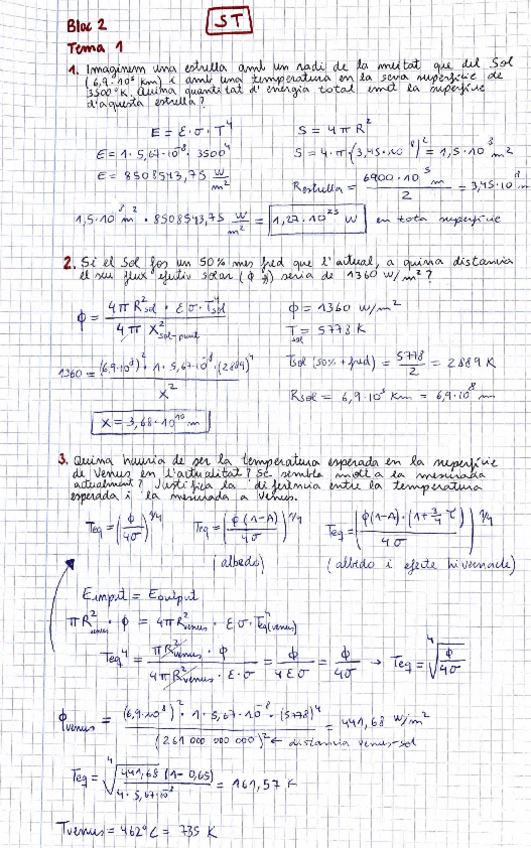 Bloc 2
ST
Tema 1
1. Imaginem una estrella amb un radi de la meitat que del Sol
(6,9·10⁵ km) i amb una temperatura en la seva superfície de
3500°K. Quina quantitat d'energia total emet la superfície
d'aquesta estrella?
E = ε·σ·T⁴
S = 4πR²
E = 1·5,67·10⁻⁸·3500⁴
S = 4·π·(3,45·10⁸)² = 1,5·10 m²
E = 8508543,75 W/m²
Restrella = 6900·10⁵ m / 2 = 3,45·10⁸ m
1,5·10 m² · 8508543,75 W/m² = 1,27·10²⁵ W en tota superfície
2. Si el Sol fos un 50% més fred que l'actual, a quina distància
el seu flux efectiu solar (ϕ) seria de 1360 W/m²?
ϕ = 4πR²sol · εσ·T⁴sol / 4π X²sol-punt
ϕ = 1360 W/m²
Tsol = 5778 K
1360 = (6,9·10⁸)²·1·5,67·10⁻⁸·(2889)⁴ / X²
Tsol (50% + fred) = 5778/2 = 2889 K
Rsol = 6,9·10⁵ Km = 6,9·10⁸ m
X = 3,68·10¹⁰ m
3. Quina hauria de ser la temperatura esperada en la superfície
de Venus en l'actualitat? Se sembla molt a la mesurada
actualment? Justifica la diferència entre la temperatura
esperada i la mesurada a Venus.
Teq = (ϕ/4σ)^1/4
Teq = (ϕ(1-A)/4σ)^1/4
Teq = (ϕ(1-A)·(1+3/4 τ)/4σ)^1/4
(albedo)
(albedo i efecte hivernacle)
Einput = Eoutput
πR²venus · ϕ = 4πR²venus · εσ·T⁴eq(venus)
Teq⁴ = πR²venus · ϕ / 4πR²venus · ε·σ = ϕ/4εσ = ϕ/4σ → Teq = ⁴√ϕ/4σ
ϕvenus = (6,9·10⁸)²·1·5,67·10⁻⁸·(5778)⁴ / (261 000 000 000)² ← distància venus-sol = 441,68 W/m²
Teq = ⁴√441,68 (1-0,65) / 4·5,67·10⁻⁸ = 161,57 K
Tvenus = 462°C = 735 K